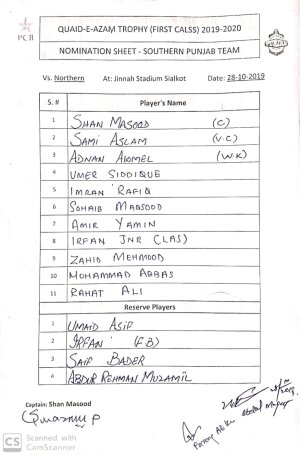 PCB
QUAID-E-AZAM TROPHY (FIRST CALSS) 2019-2020
NOMINATION SHEET - SOUTHERN PUNJAB TEAM
Vs. Northern At: Jinnah Stadium Sialkot Date: 28-10-2019
S. # Player's Name
1 SHAN MASOOD (C)
2 SAMI ASLAM (V.C)
3 ADNAN AKMEL (W.K)
4 UMER SIDDIQUE
5 IMRAN RAFIQ
6 SOHAIB MAQSOOD
7 AMIR YAMIN
8 IRFAN JNR (LAS)
9 ZAHID MEHMOOD
10 MOHAMMAD ABBAS
11 RAHAT ALI
Reserve Players
1 UMAID ASIF
2 IRFAN (FB)
3 SAIF BADER
4 ABDUR REHMAN MUZAMIL
Captain: Shan Masood
CS Scanned with
CamScanner